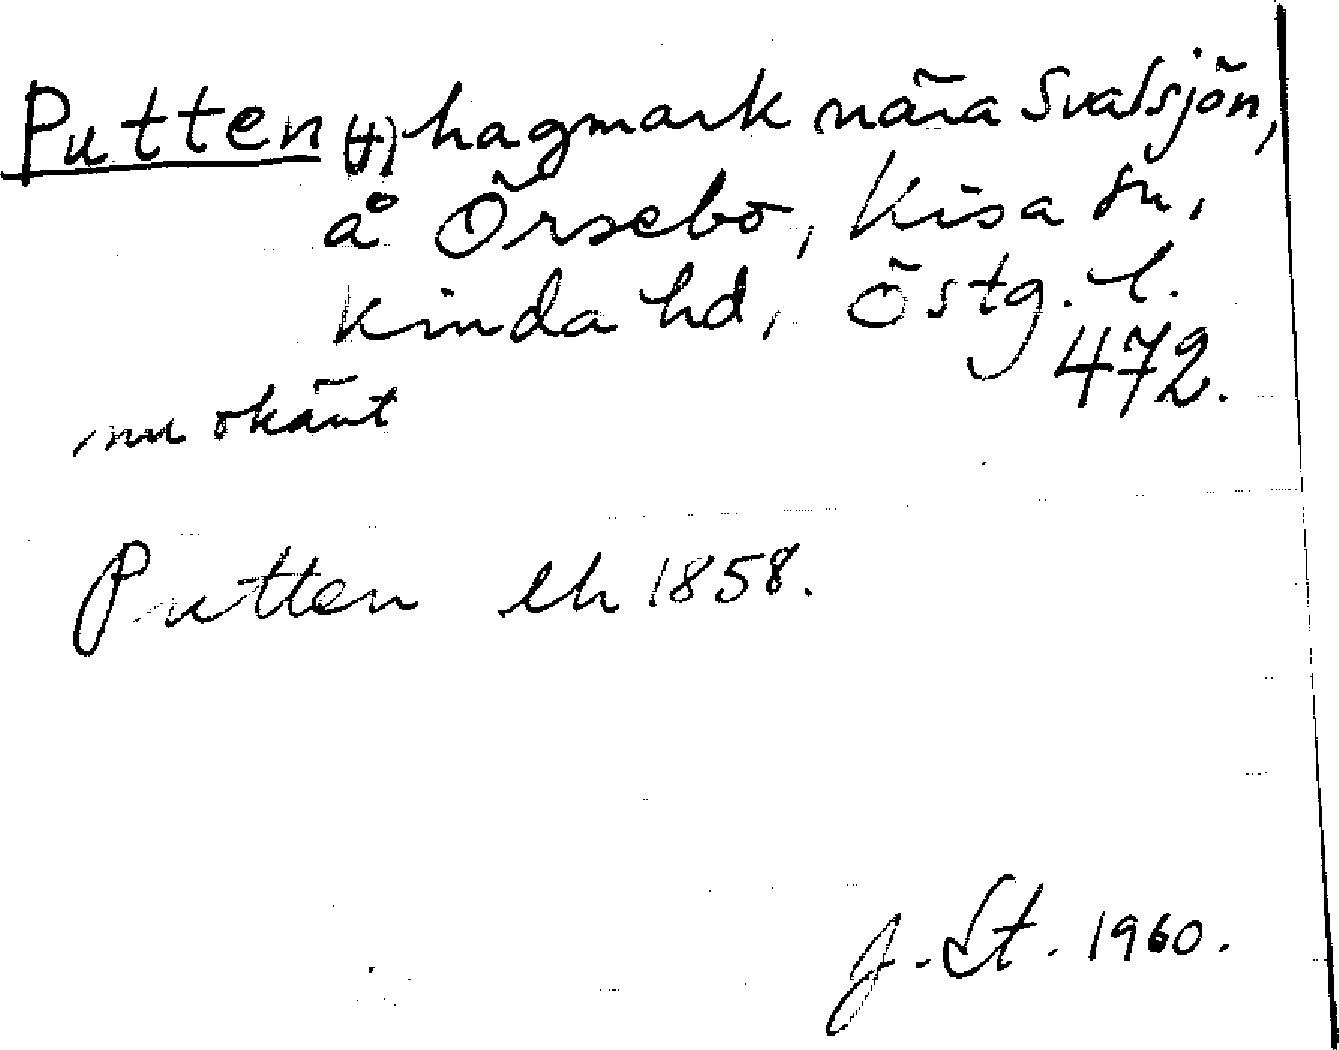 Putten (†) hagmark nära Svalsjön,
å Örsebo, Kisa sn,
Kinda hd, Östg. l.
472.
nu okänt
Putten lh 1858.
J. St. 1960.